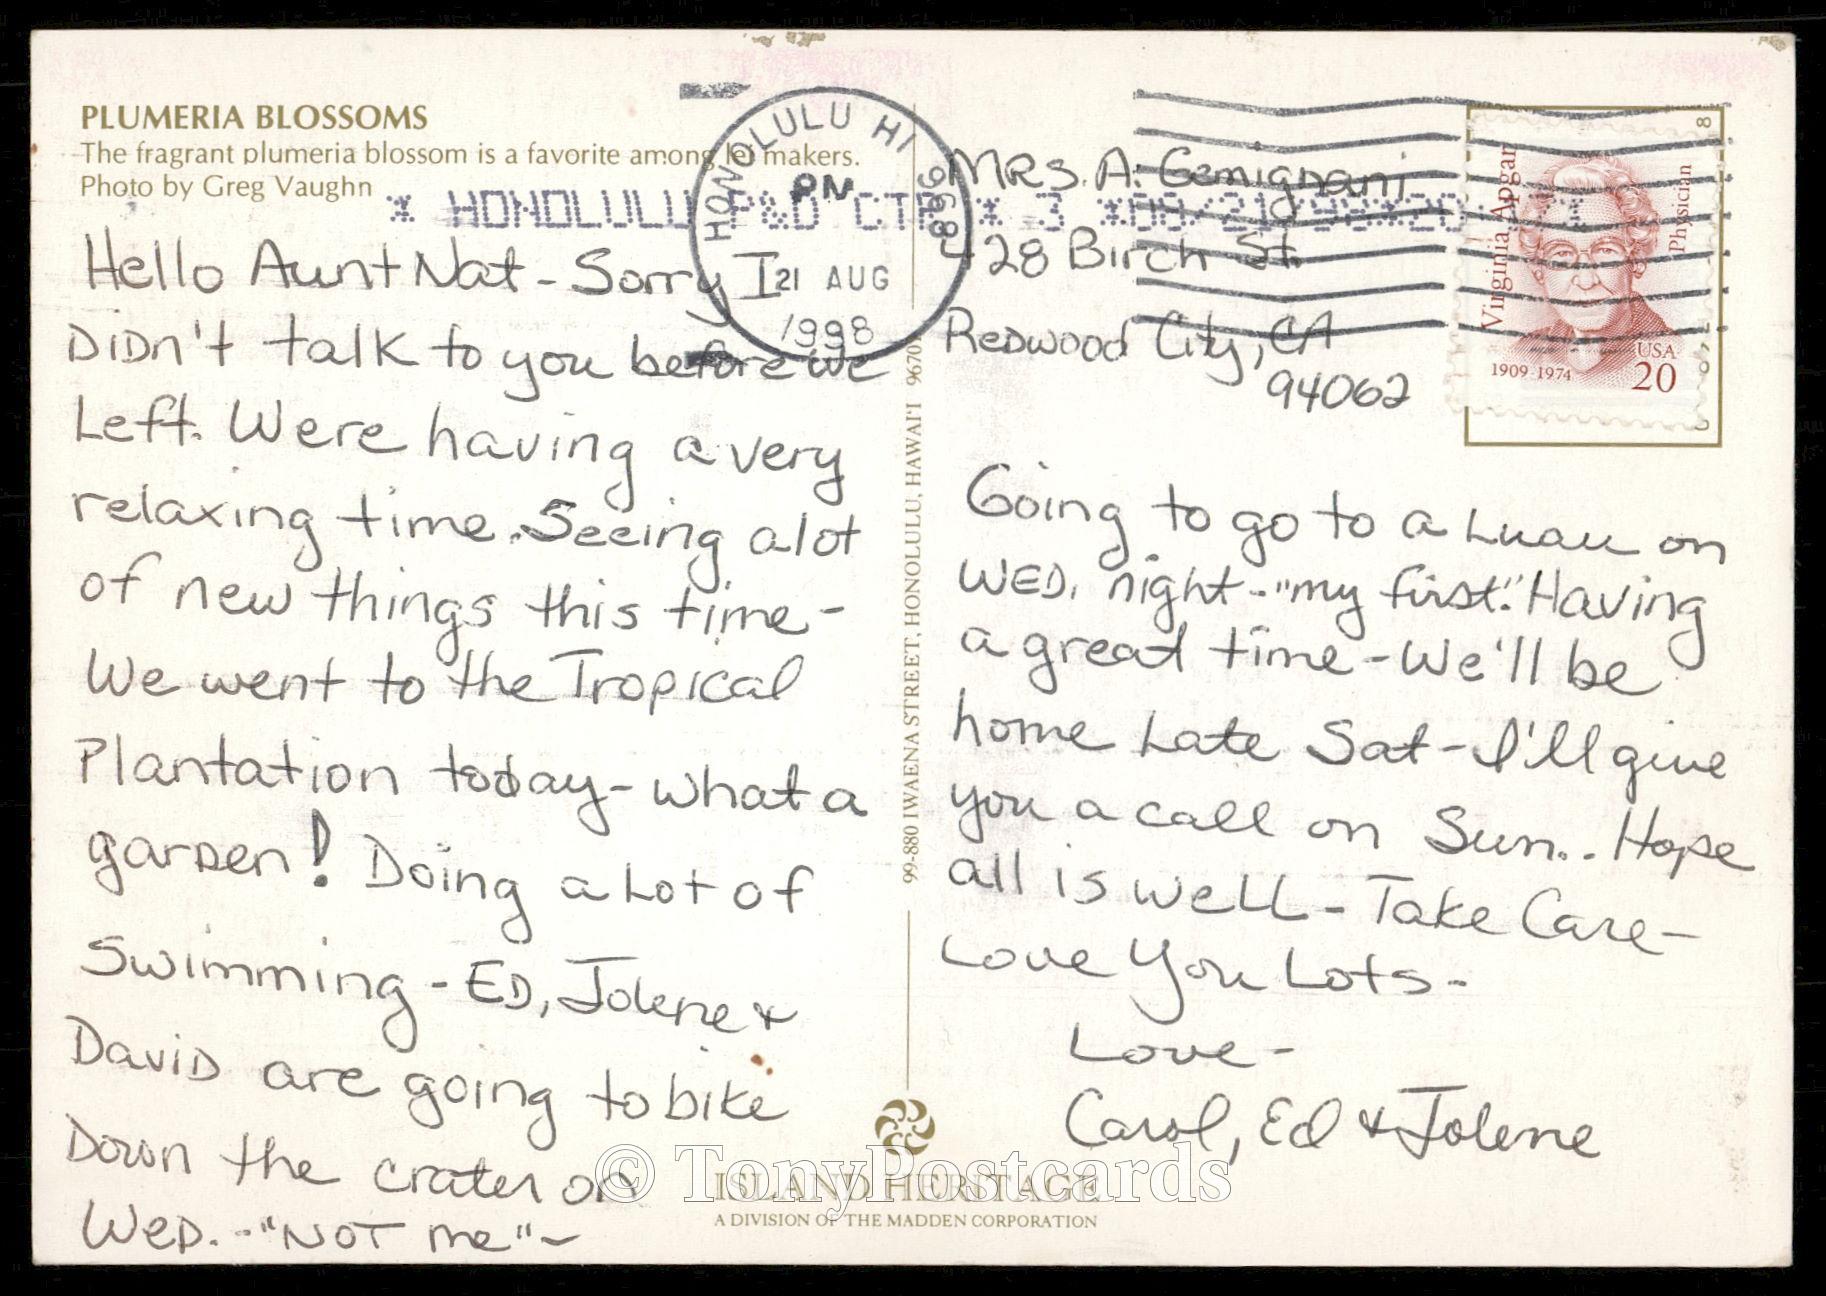 PLUMERIA BLOSSOMS
The fragrant plumeria blossom is a favorite among lei makers.
Photo by Greg Vaughn
Hello Aunt Nat - Sorry I
DiDn't talk to you before we
Left. Were having a very
relaxing time. Seeing alot
of new things this time -
We went to the Tropical
Plantation today - what a
garDen! Doing a Lot of
Swimming - ED, Jolene &
DaviD are going to bike
Down the crater on
WeD. - "NOT me" -
HONOLULU HI 968
PM
21 AUG
1998
* HONOLULU P&D CTR * 3 *08/21/98*20
99-880 IWAENA STREET, HONOLULU, HAWAI'I 96701
MRS. A. Gemignani
428 Birch St.
ReDwood City, CA
94062
Virginia Apgar
Physician
1909-1974
USA
20
Going to go to a Luau on
WED. night - "my first". Having
a great time - We'll be
home Late Sat - I'll give
you a call on Sun.. Hope
all is weLL - Take Care -
Love You Lots -
Love -
Carol, Ed & Jolene
ISLAND HERITAGE
A DIVISION OF THE MADDEN CORPORATION
© TonyPostcards